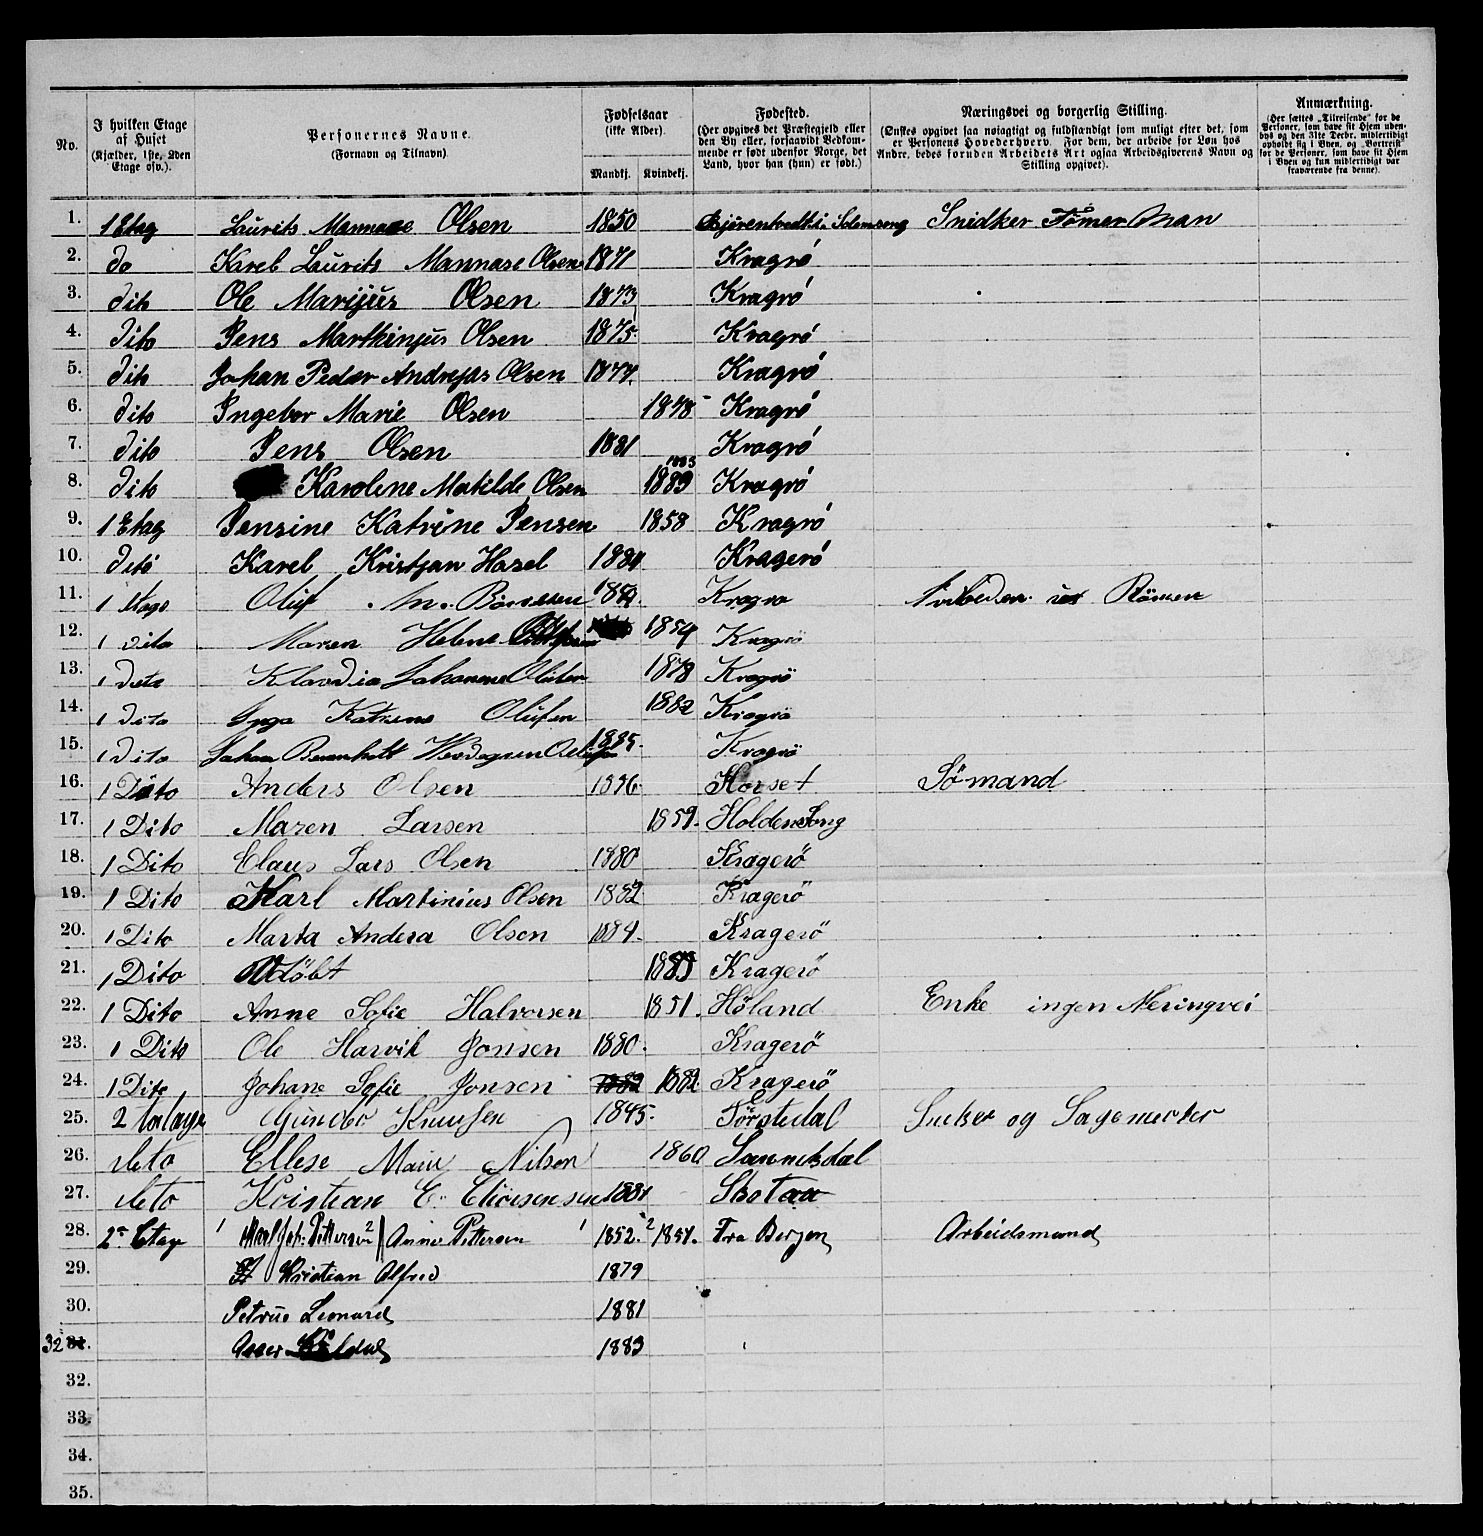 No.
I hvilken Etage af Huset (Kjælder, 1ste, 2den Etage osv.).
Personernes Navne. (Fornavn og Tilnavn).
Fødselsaar (ikke Alder). Mandkj. Kvindekj.
Fødested. (Her opgives det Præstegjeld eller den By eller, forsaavidt Vedkommende er født udenfor Norge, det Land, hvor han (hun) er født.)
Næringsvei og borgerlig Stilling. (Ønskes opgivet saa nøiagtigt og fuldstændigt som muligt efter det, som er Personens Hovederhverv. For dem, der arbeide for Løn hos Andre, bedes foruden Arbeidets Art ogsaa Arbeidsgiverens Navn og Stilling opgivet).
Anmærkning. (Her sættes „Tilreisende" for de Personer, som have sit Hjem udenbys og den 31te Decbr. midlertidigt opholdt sig i Byen, og „Bortreist" for de Personer, som have sit Hjem i Byen og kun midlertidigt var fraværende fra denne).
1. 1 Etag Laurits Mannase Olsen 1850 Snidker Tømer Man
2. do Karel Laurits Mannase Olsen 1871 Kragrö
3. dito Ole Marijus Olsen 1873 Kragrö
4. dito Jens Marthinjus Olsen 1875 Kragrö
5. dito Johan Peder Andrejas Olsen 1877 Kragrö
6. dito Ingebor Marie Olsen 1878 Kragrö
7. dito Jens Olsen 1881 Kragrö
8. dito Karoline Matilde Olsen 1883 1883 Kragrö
9. 1 Etag Jensine Katrine Jensen 1858 Kragrö
10. dito Karel Kristjan Hasel 1884 Kragerö
11. 1 Etage Oluf Kragrö
12. 1 dito Maren Helene 1854 Kragrö
13. 1 dito Klavdia Johanne 1878 Kragrö
14. 1 dito Inga Katrine Olufen 1882 Kragrö
15. 1 dito Johan 1885. Kragrö
16. 1 Dito Anders Olsen Sömand
17. 1 Dito Maren Larsen 1859. Holden
18. 1 Dito Claus Lars Olsen 1880 Kragerö
19. 1 Dito Karl Martinius Olsen 1882 Kragerö
20. 1 Dito Marta Andera Olsen 1884. Kragerö
21. 1 Dito Udöbt 1885 Kragerö
22. 1 Dito Anne Sofie Halvorsen 1851. Höland Enke ingen Neringvei
23. 1 Dito Ole Harvik Jonsen 1880. Kragerö
24. 1 Dito Johane Sofie Jonsen 1882 1882 Kragerö
25. 2 Knusen 1845. Törstedal og
26. deto Ellese Marie Nilsen 1860 Sannikdal
27. deto Kristian E. 1881 Skotau
28. 2n Etag 1 Joh: Pettersen 2 Anne Pettersen 1 1852. 2 1857. Fra Bergen Arbeidsmand
29. Kristian Alfred 1879
30. Petrus Leonard 1881
32 31. 1883
32.
33.
34.
35.